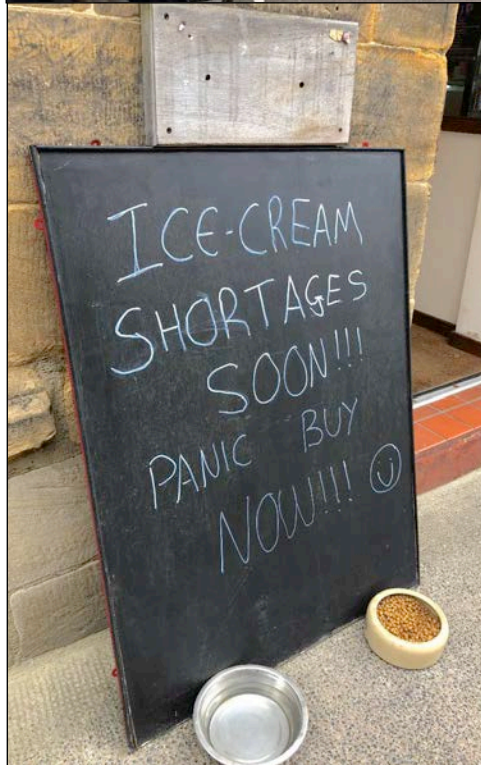 ICE-CREAM
SHORTAGES
SOON!!!
PANIC BUY
NOW!!! ☺